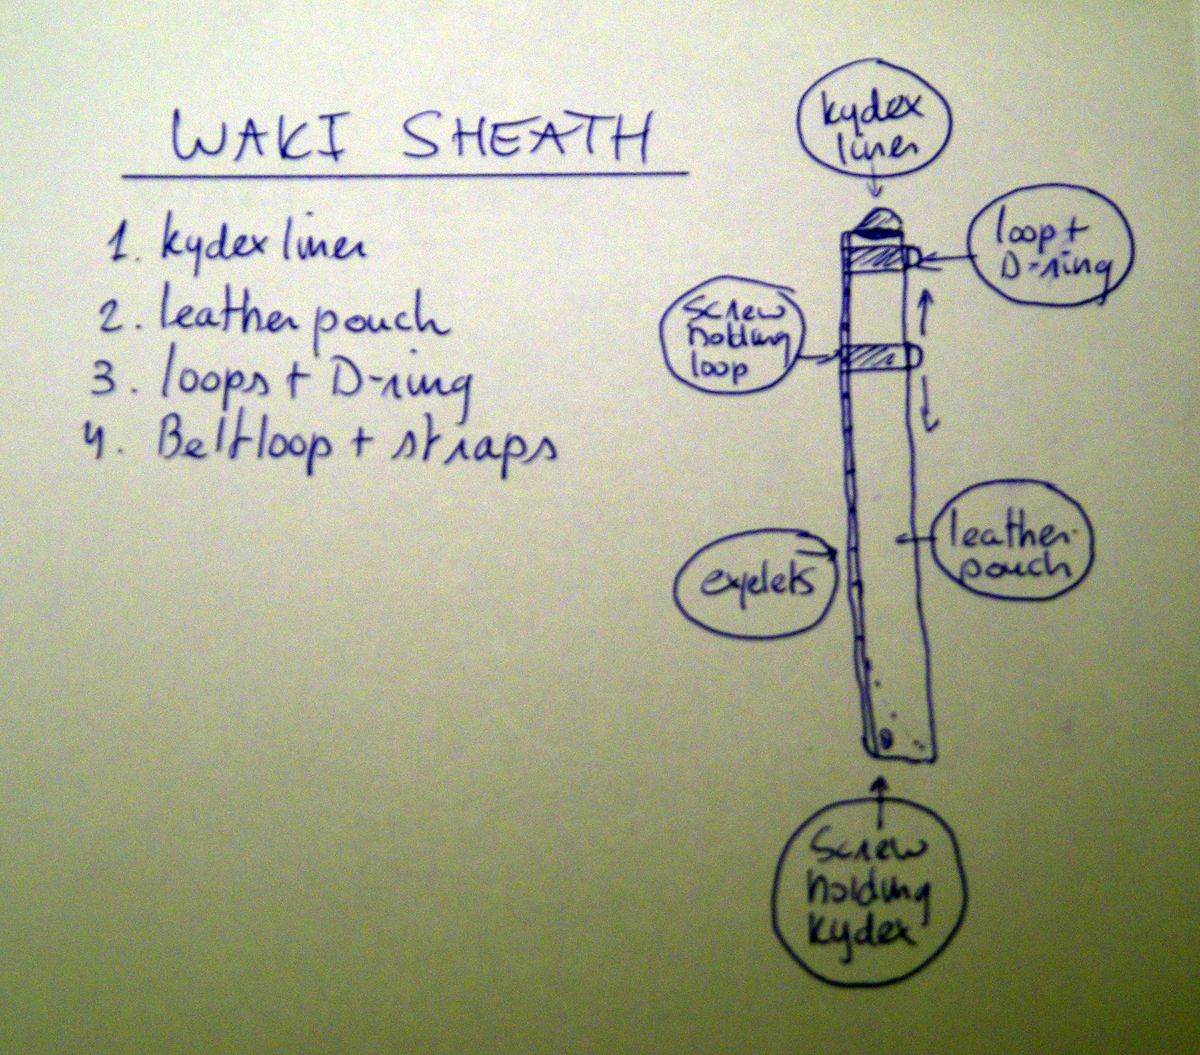 WAKI SHEATH
1. kydex liner
2. leather pouch
3. loops + D-ring
4. Beltloop + straps
kydex
liner
loop +
D-ring
screw
holding
loop
leather
pouch
eyelets
screw
holding
kydex